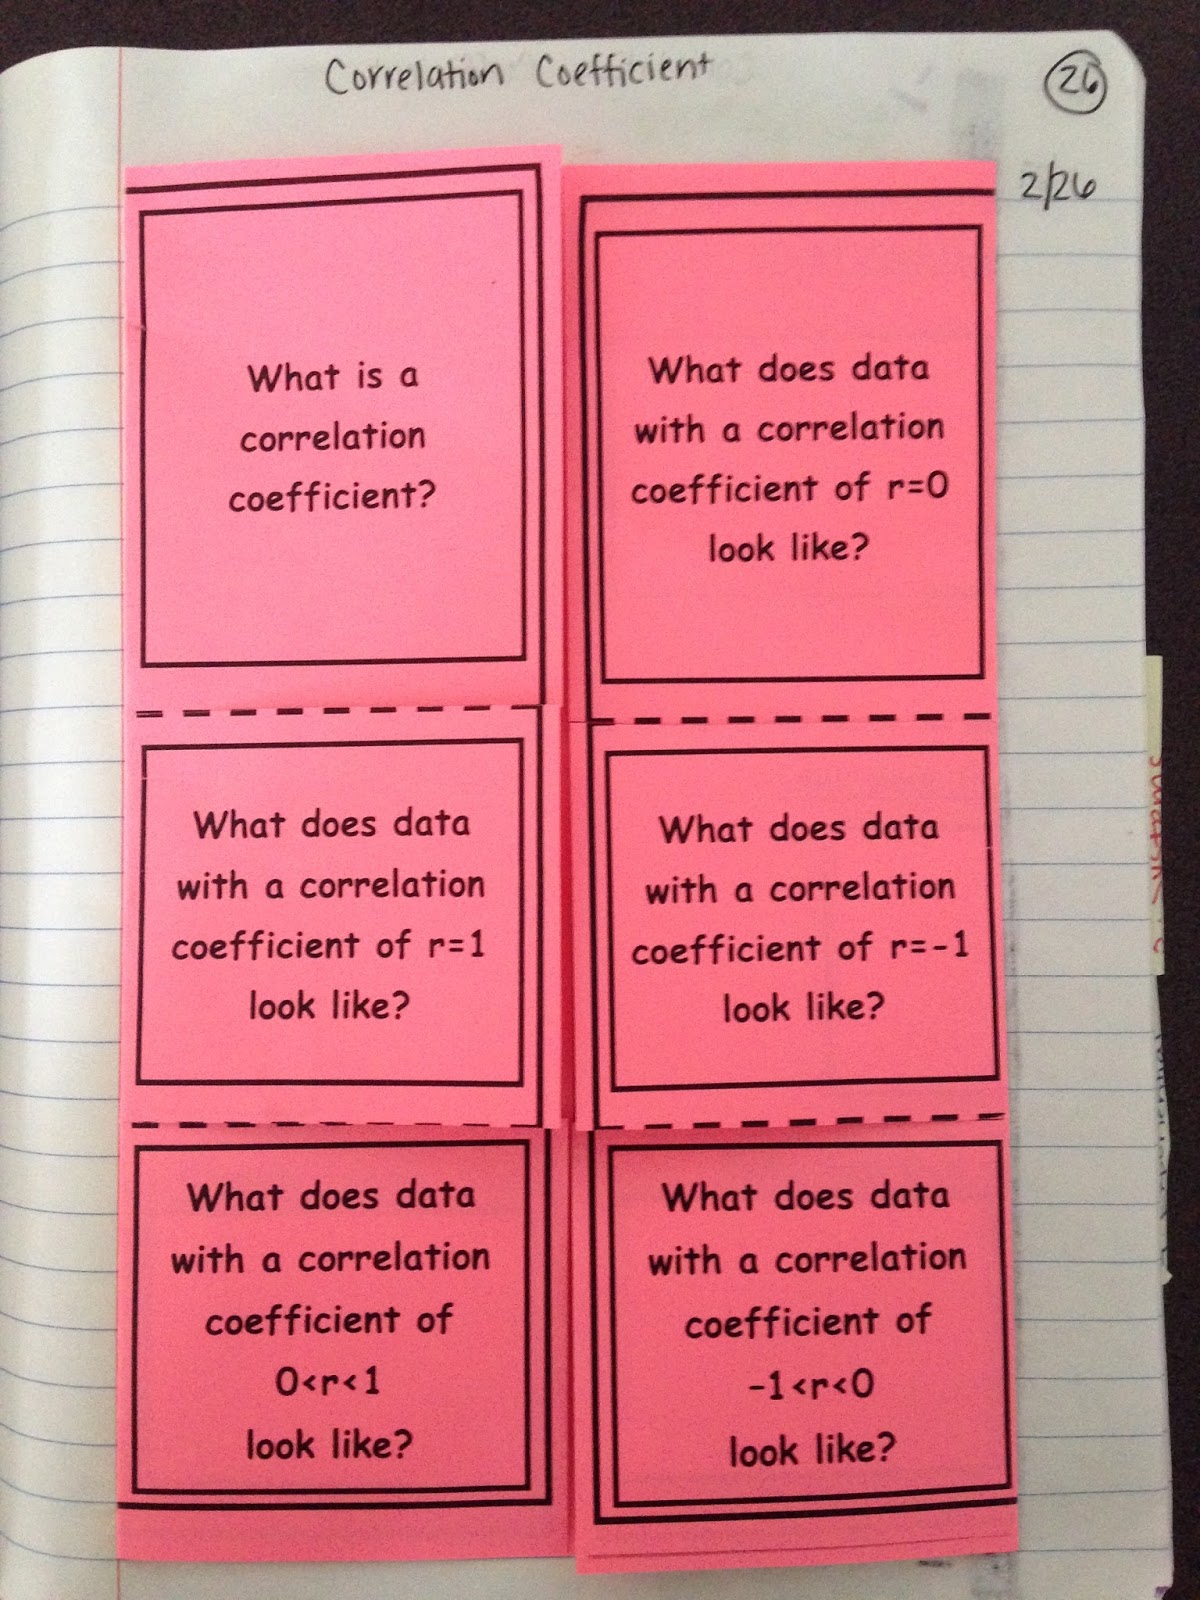 Correlation Coefficient
26
2/26
What is a
correlation
coefficient?
What does data
with a correlation
coefficient of r=0
look like?
What does data
with a correlation
coefficient of r=1
look like?
What does data
with a correlation
coefficient of r=-1
look like?
What does data
with a correlation
coefficient of
0<r<1
look like?
What does data
with a correlation
coefficient of
-1<r<0
look like?